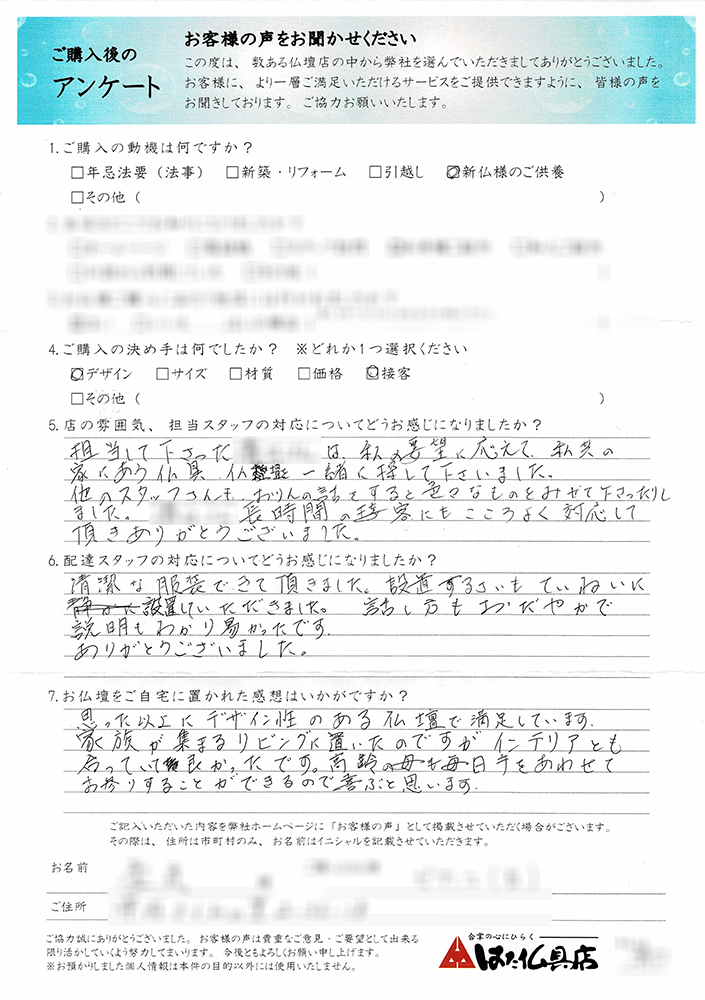 ご購入後の
アンケート
お客様の声をお聞かせください
この度は、数ある仏壇店の中から弊社を選んでいただきましてありがとうございました。
お客様に、より一層ご満足いただけるサービスをご提供できますように、皆様の声を
お聞きしております。ご協力お願いいたします。
1.ご購入の動機は何ですか?
□年忌法要(法事) □新築・リフォーム □引越し □新仏様のご供養
□その他( )
4.ご購入の決め手は何でしたか? ※どれか1つ選択ください
□デザイン □サイズ □材質 □価格 □接客
□その他( )
5.店の雰囲気、担当スタッフの対応についてどうお感じになりましたか?
担当して下さった は、私の要望に応えて、私共の
家にあう仏具、仏壇 一緒に探して下さいました。
他のスタッフさんも、おりんの話をすると色々なものをみせて下さったりし
ました。 長時間の接客にもこころよく対応して
頂きありがとうございました。
6.配達スタッフの対応についてどうお感じになりましたか?
清潔な服装できて頂きました。設置するさいもていねいに
設置していただきました。 話し方もおだやかで
説明もわかり易かったです。
ありがとうございました。
7.お仏壇をご自宅に置かれた感想はいかがですか?
思った以上にデザイン性のある仏壇で満足しています。
家族が集まるリビングに置いたのですがインテリアとも
合っていて良かったです。高齢の母も毎日手をあわせて
お参りすることができるので喜ぶと思います。
ご記入いただいた内容を弊社ホームページに「お客様の声」として掲載させていただく場合がございます。
その際は、住所は市町村のみ、お名前はイニシャルを記載させていただきます。
お名前
ご住所
ご協力誠にありがとうございました。お客様の声は貴重なご意見・ご要望として出来る
限り活かしていくよう努力してまいります。今後ともよろしくお願い申し上げます。
※お預かりしました個人情報は本件の目的以外には使用いたしません。
合掌の心にひらく
はた仏具店